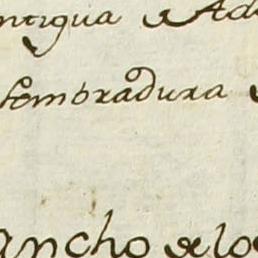 ntigua Ad
sembradura
ancho de lo